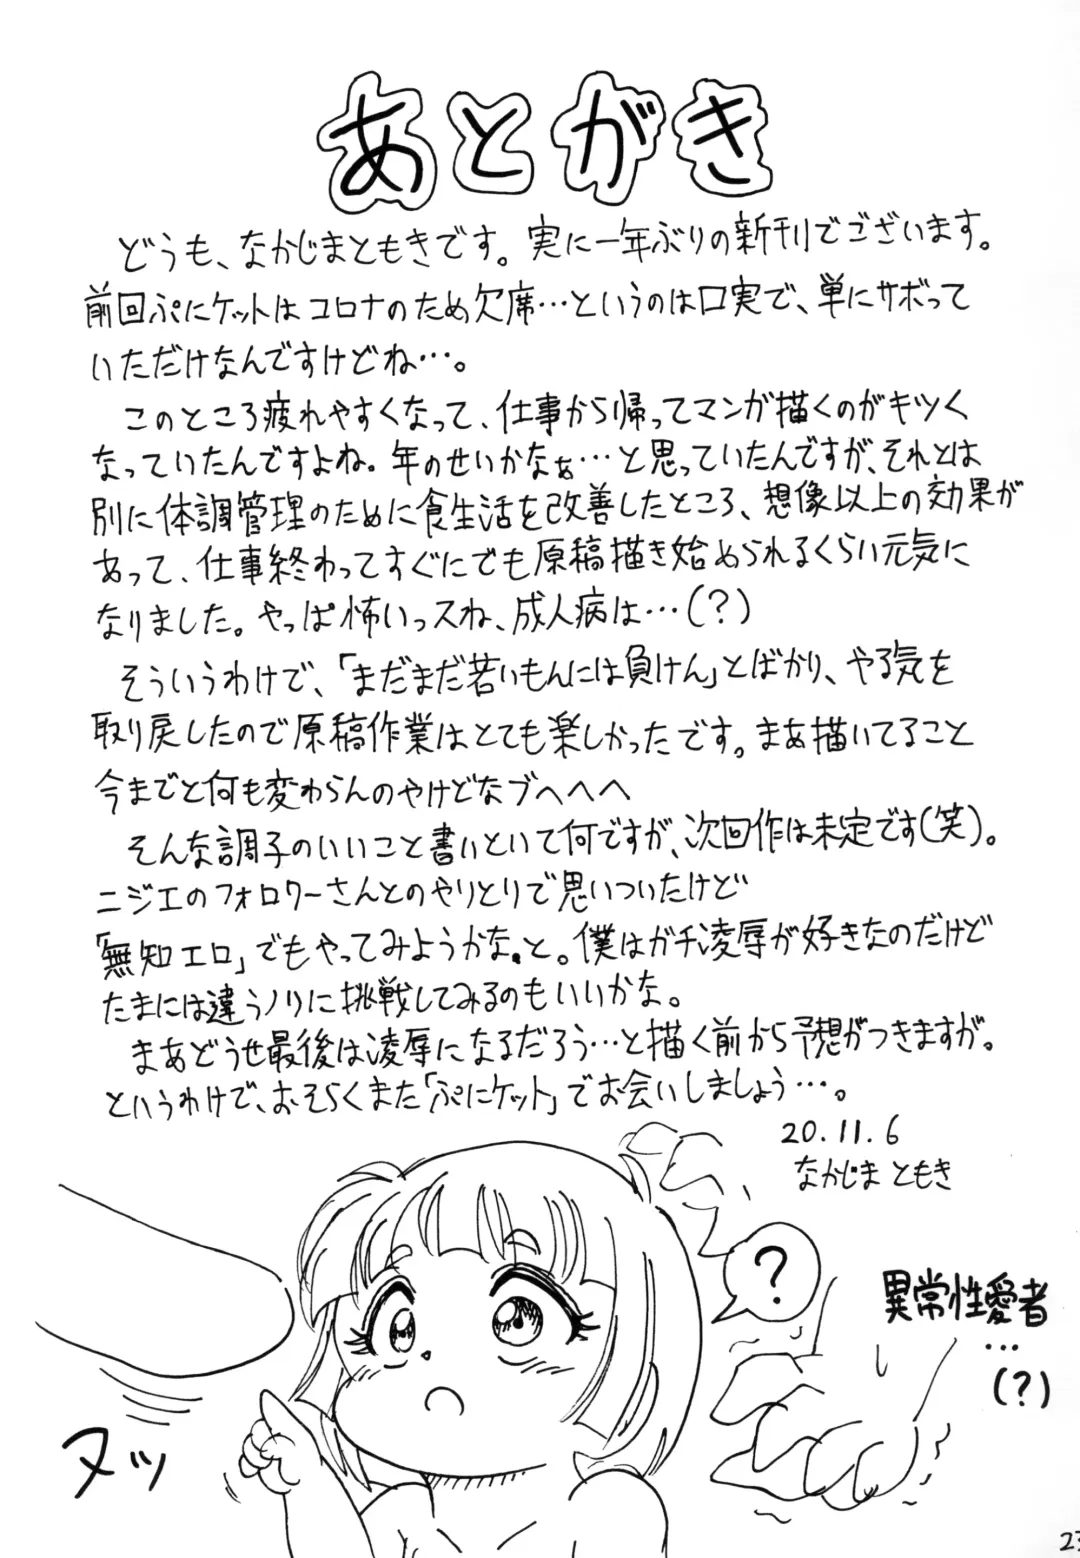 あとがき
どうも、なかじまともきです。実に一年ぶりの新刊でございます。
前回ぷにケットはコロナのため欠席…というのは口実で、単にサボって
いただけなんですけどね…。
このところ疲れやすくなって、仕事から帰ってマンガ描くのがキツく
なっていたんですよね。年のせいかなぁ…と思っていたんですが、それとは
別に体調管理のために食生活を改善したところ、想像以上の効果が
あって、仕事終わってすぐにでも原稿描き始められるくらい元気に
なりました。やっぱ怖いっスね、成人病は…(?)
そういうわけで、「まだまだ若いもんには負けん」とばかり、やる気を
取り戻したので原稿作業はとても楽しかったです。まあ描いてること
今までと何も変わらんのやけどなブへへへ
そんな調子のいいこと書いといて何ですが、次回作は未定です(笑)。
ニジエのフォロワーさんとのやりとりで思いついたけど
「無知エロ」でもやってみようかな、と。僕はガチ凌辱が好きなのだけど
たまには違うノリに挑戦してみるのもいいかな。
まあどうせ最後は凌辱になるだろう…と描く前から予想がつきますが。
というわけで、おそらくまた「ぷにケット」でお会いしましょう…。
20.11.6
なかじまともき
?
異常性愛者
…
(?)
ヌッ
23